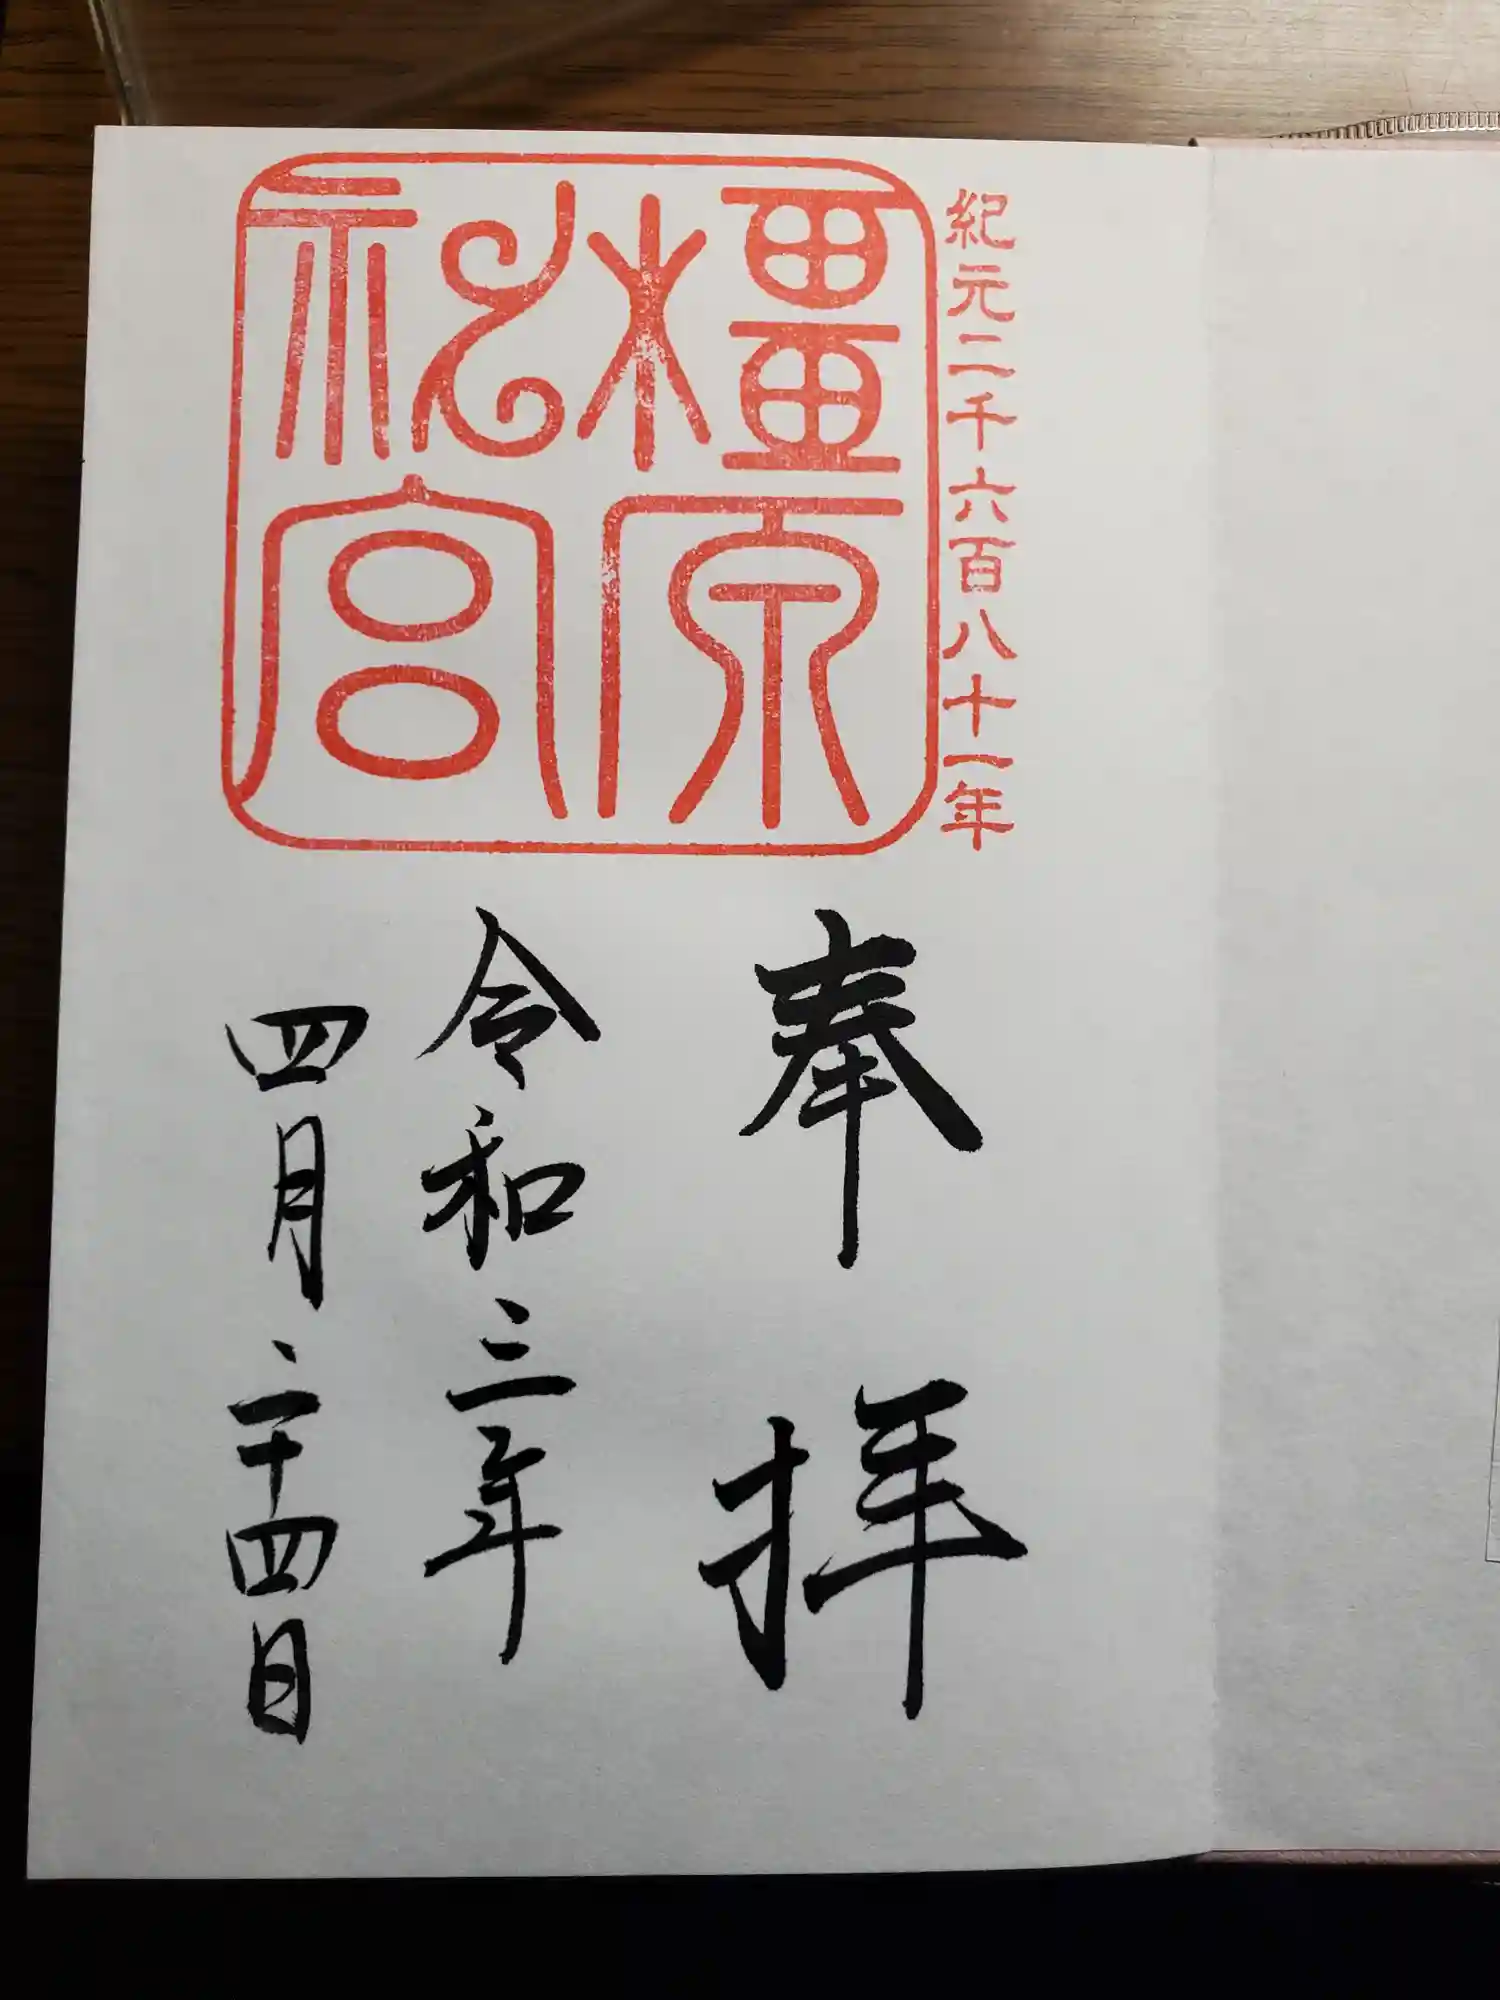 紀元二千六百八十一年
橿原神宮
奉拝
令和三年
四月二十四日